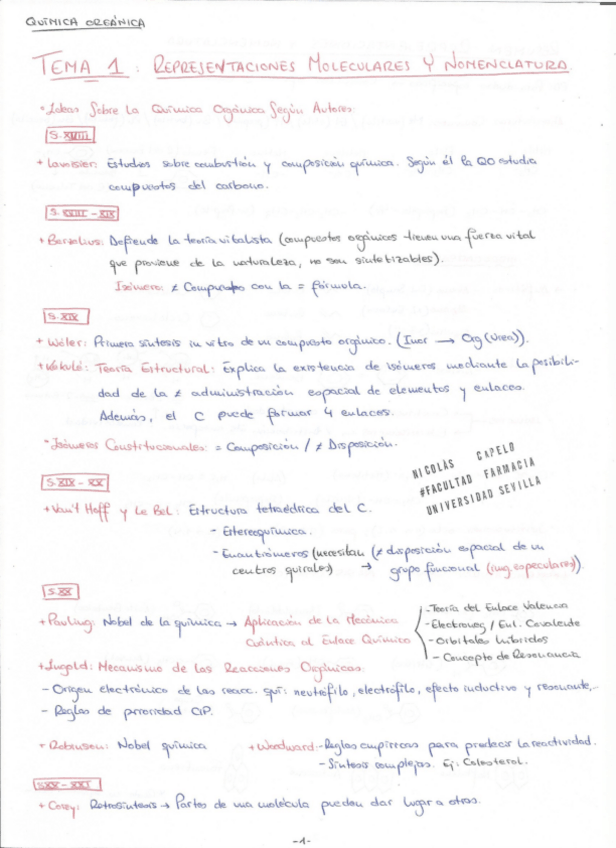 QUÍMICA ORGÁNICA
TEMA 1 : REPRESENTACIONES MOLECULARES Y NOMENCLATURA.
* Ideas Sobre La Química Orgánica Según Autores
S. XVIII
+ Lavoisier: Estudios sobre combustión y composición química. Según él la QO estudia
compuestos del carbono.
S. XVIII - XIX
+ Berzelius: Defiende la teoría vitalista (compuestos orgánicos tienen una fuerza vital
que proviene de la naturaleza, no son sintetizables).
Isómero: ≠ Compuestos con la = fórmula.
S. XIX
+ Wöler: Primera síntesis in vitro de un compuesto orgánico. (Inor → Org (Urea)).
+ Kekulé: Teoría Estructural: Explica la existencia de isómeros mediante la posibili-
dad de la ≠ administración espacial de elementos y enlaces.
Además, el C puede formar 4 enlaces.
- Isómeros Constitucionales: = Composición / ≠ Disposición.
NICOLÁS CAPELO
#FACULTAD FARMACIA
UNIVERSIDAD SEVILLA
S. XIX - XX
+ Van't Hoff y Le Bel: Estructura tetraédrica del C.
- Estereoquímica.
- Enantiómeros (necesitan (≠ disposición espacial de un
centros quirales) → grupo funcional (img. especulares)).
S. XX
+ Pauling: Nobel de la química → Aplicación de la Mecánica
Cuántica al Enlace Químico
- Teoría del Enlace Valencia
- Electroneg / Enl. Covalente
- Orbitales híbridos
- Concepto de Resonancia
+ Ingold: Mecanismo de las Reacciones Orgánicas.
- Origen electrónico de las reacc. quí: neutrófilo, electrófilo, efecto inductivo y resonante,..
- Reglas de prioridad CIP.
+ Robinson: Nobel química
+ Woodward: - Reglas empíricas para predecir la reactividad.
- Síntesis complejas. Ej: Colesterol.
S. XX - XXI
+ Corey: Retrosíntesis → Partes de una molécula pueden dar lugar a otras.
-1-